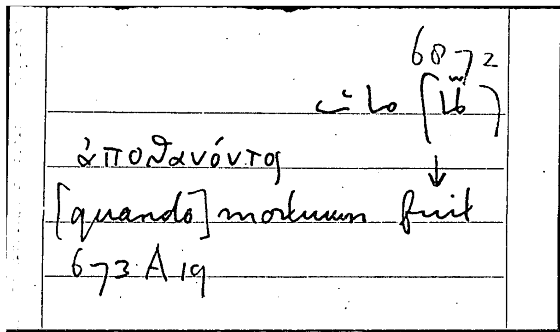 6872
ἀποθανόντος
[quando] mortuum fuit
673 A 19